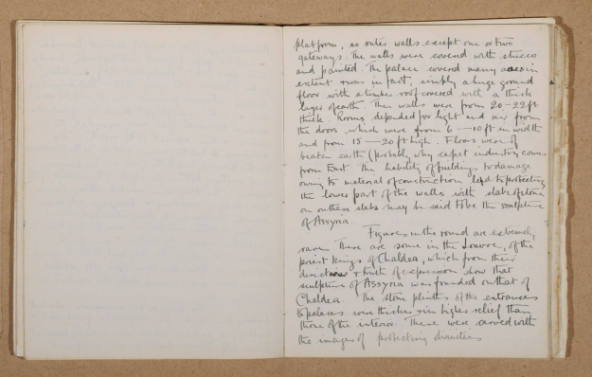 platform, no outer walls except one or two
gateways. The walls were covered with stucco
and painted. The palace covered many acres in
extent & was in fact, simply a huge ground
floor with a timber roof covered with a thick
layer of earth. The walls were from 20 – 22 ft
thick. Rooms depended for light and air from
the doors which were from 6 – 10 ft in width
and from 15 – 20 ft high. Floors were of
beaten earth (probably why carpet industry came
from East. The liability of buildings to damage
owing to material of construction led to protecting
the lower part of the walls with slabs of stone
on outer slabs may be said to be the sculpture
of Assyria.
Figures in the round are extremely
rare. There are some in the Louvre, of the
priest kings of Chaldea, which from their
directness & truth of expression show that
sculpture of Assyria was founded on that of
Chaldea. The stone plinths of the entrances
to palaces were thicker & in higher relief than
those of the interior. These were carved with
the images of protecting divinities